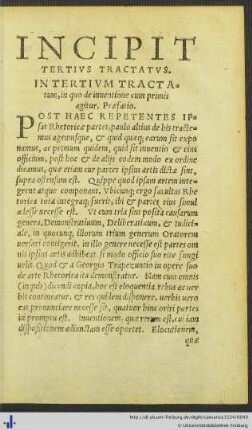 INCIPIT
TERTIVS TRACTATVS.
IN TERTIVM TRACTA-
tum, in quo de inuentione cum primis
agitur, Præfatio.
POST HAEC REPETENTES IP-
sas Rhetoricæ partes, paulo altius de his tracte-
mus agamusque, & quid quæque earum sit expo
namus, ac primum quidem, quid sit inuentio & eius
officium, post hoc & de alijs eodem modo ex ordine
dicamus, quæ etiam cur partes ipsius artis dictæ sint,
supra ostensum est. Quippe quod ipsam artem inte-
grent atque componant. Vbicunque ergo facultas Rhe
torica tota integraque fuerit, ibi & partes eius simul
adesse necesse est. Vt cum tria sint posita causarum
genera, Demonstratiuum, Deliberatiuum, & iudici-
ale, in quorum, illorum trium generum Oratorem
uersari contigerit, in illo genere necesse est partes om
nes ipsius artis adhibeat si modo officio suo rite fungi
uelit. Quod & a Georgio Trapezuntio in opere suo
de arte Rhetorica ita demonstratur. Nam cum omnis
(inquit) dicendi copia, hoc est eloquentia rebus ac uer
bis contineatur, & res quidem disponere, uerbis uero
eas pronunciare necesse sit, quatuor hinc oriri partes
in promptu est. Inuentionem, quæ rerum est, cui iam
dispositionem adiunctam esse oportet. Elocutionem,
quæ
http://dl.ub.uni-freiburg.de/diglit/caesarius1534/0049
© Universitätsbibliothek Freiburg